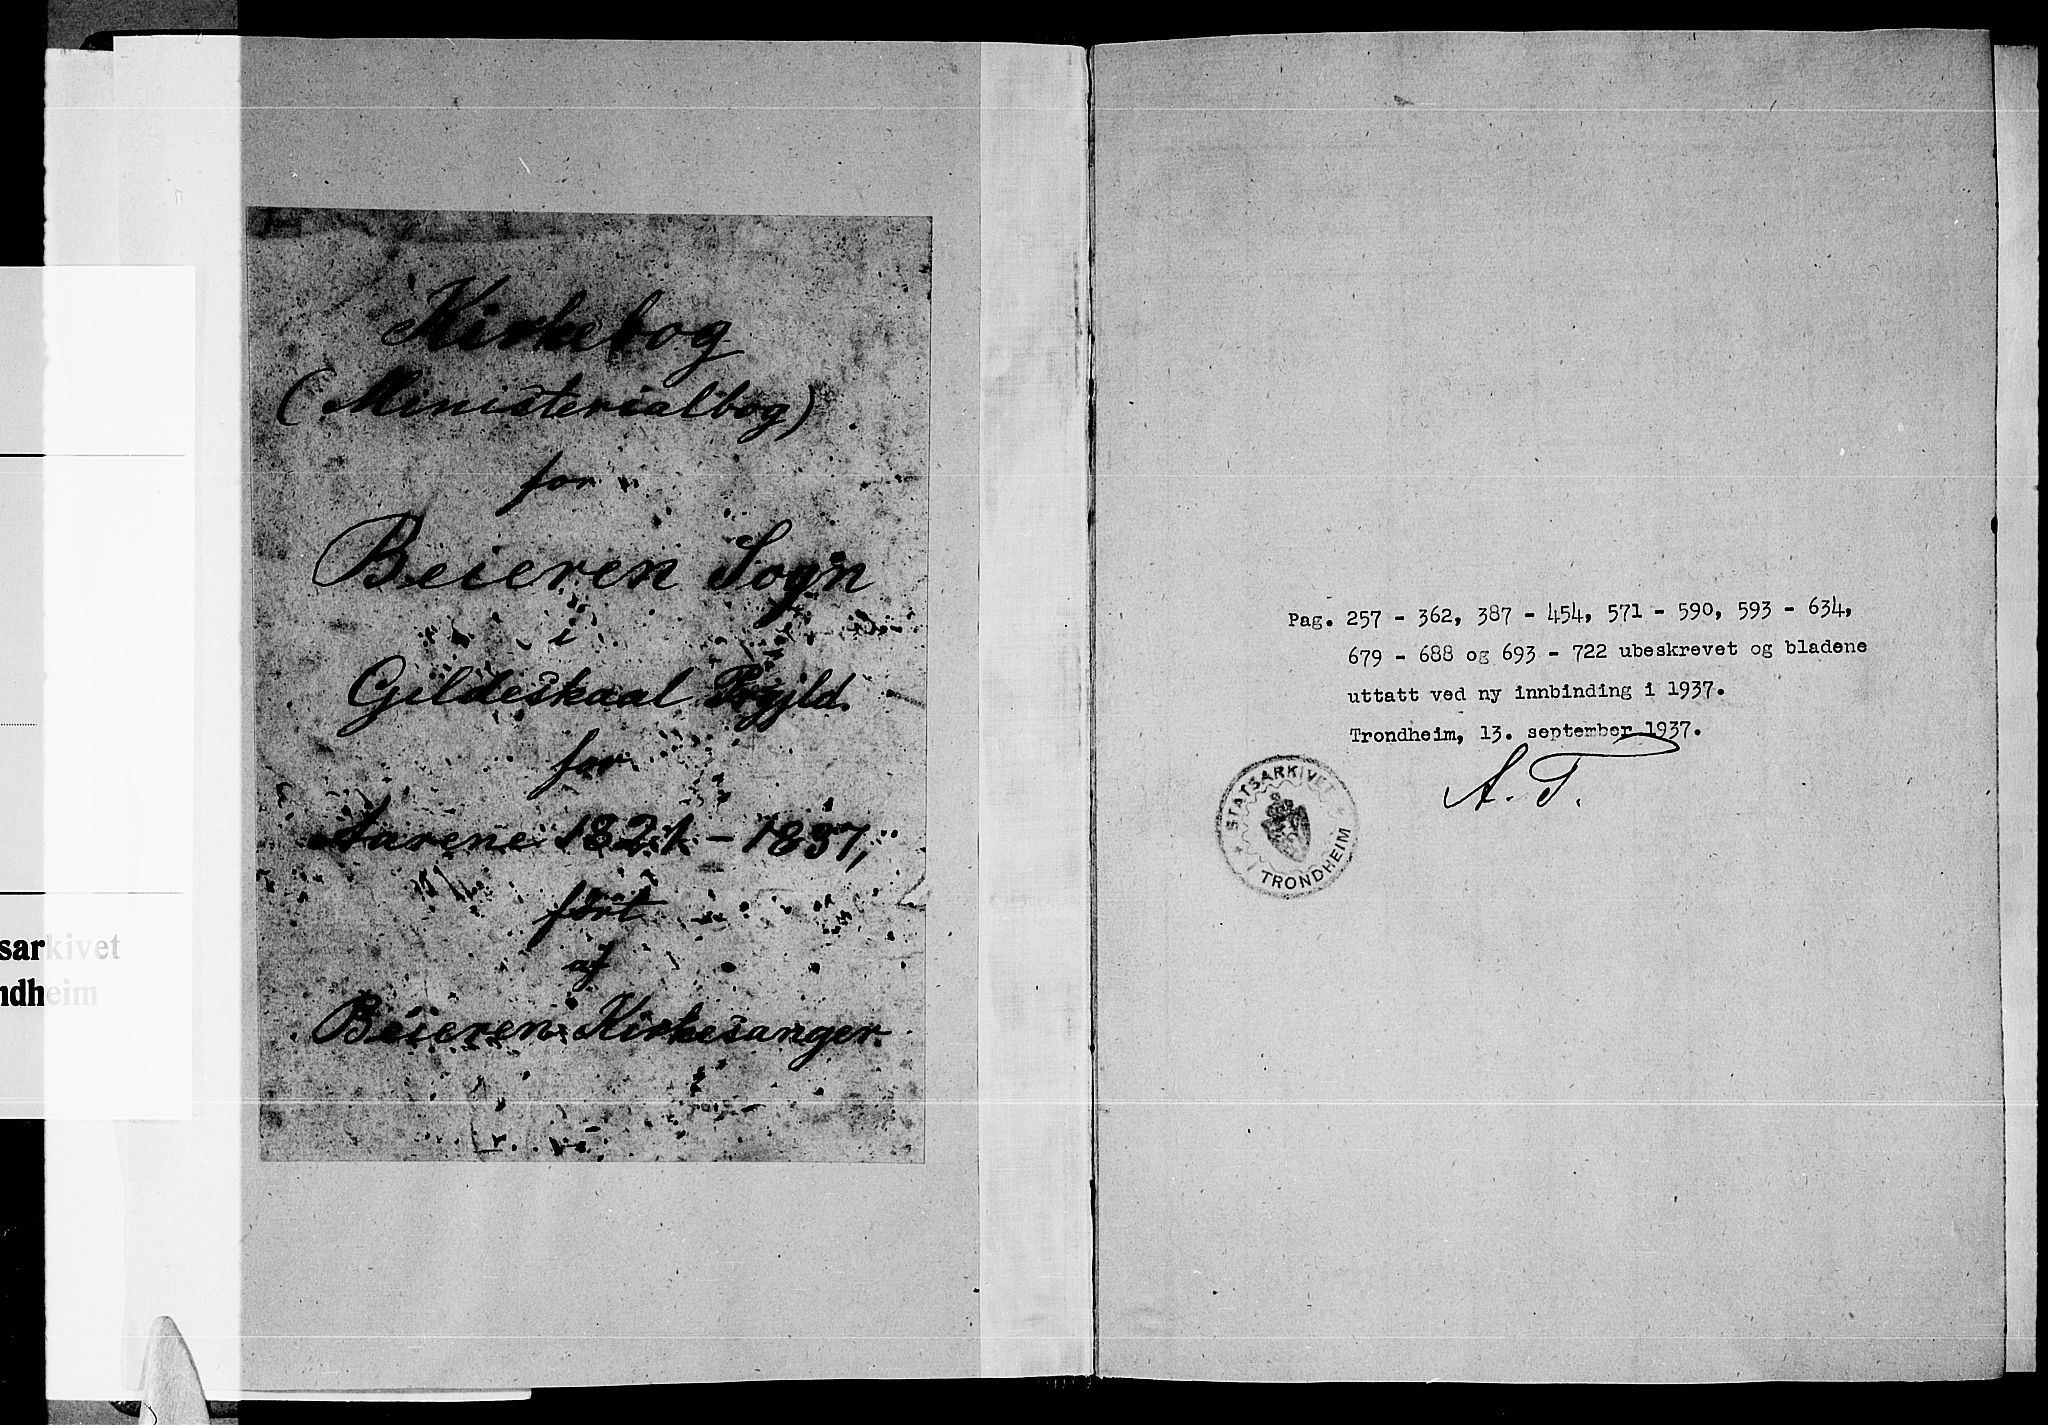 Kirkebog
(Ministerialbog)
for
Beieren Sogn
i
Gildeskaal Prgjld.
for
Aarene 1821 - 1837,
ført
af
Beieren Kirkesanger.
sarkivet
ndheim
Pag. 257 - 362, 387 - 454, 571 - 590, 593 - 634,
679 - 688 og 693 - 722 ubeskrevet og bladene
uttatt ved ny innbinding i 1937.
Trondheim, 13. september 1937.
A. T.
STATSARKIVET
TRONDHEIM